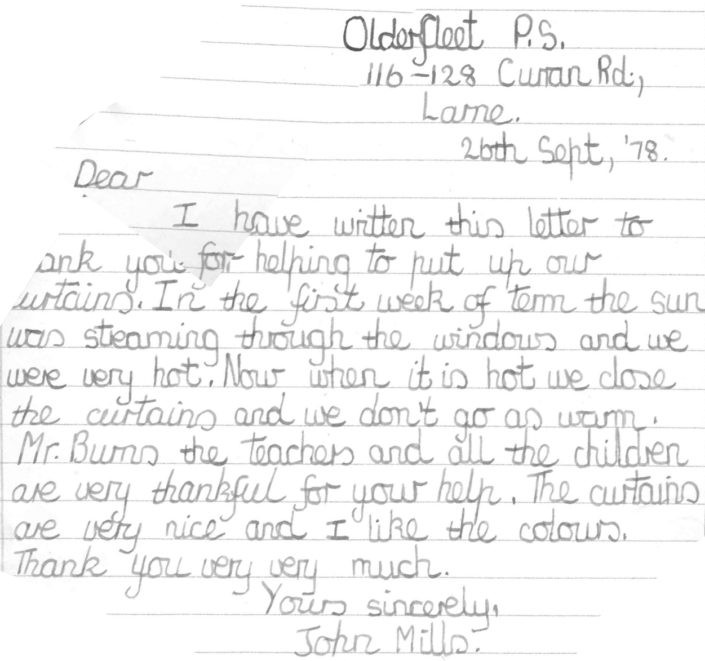 Olderfleet P.S.
116-128 Curran Rd.,
Larne.
26th Sept, '78.
Dear
I have written this letter to
ank you for helping to put up our
urtains. In the first week of term the sun
was steaming through the windows and we
were very hot. Now when it is hot we close
the curtains and we don't go as warm.
Mr. Burns the teachers and all the children
are very thankful for your help. The curtains
are very nice and I like the colours.
Thank you very very much.
Yours sincerely,
John Mills.